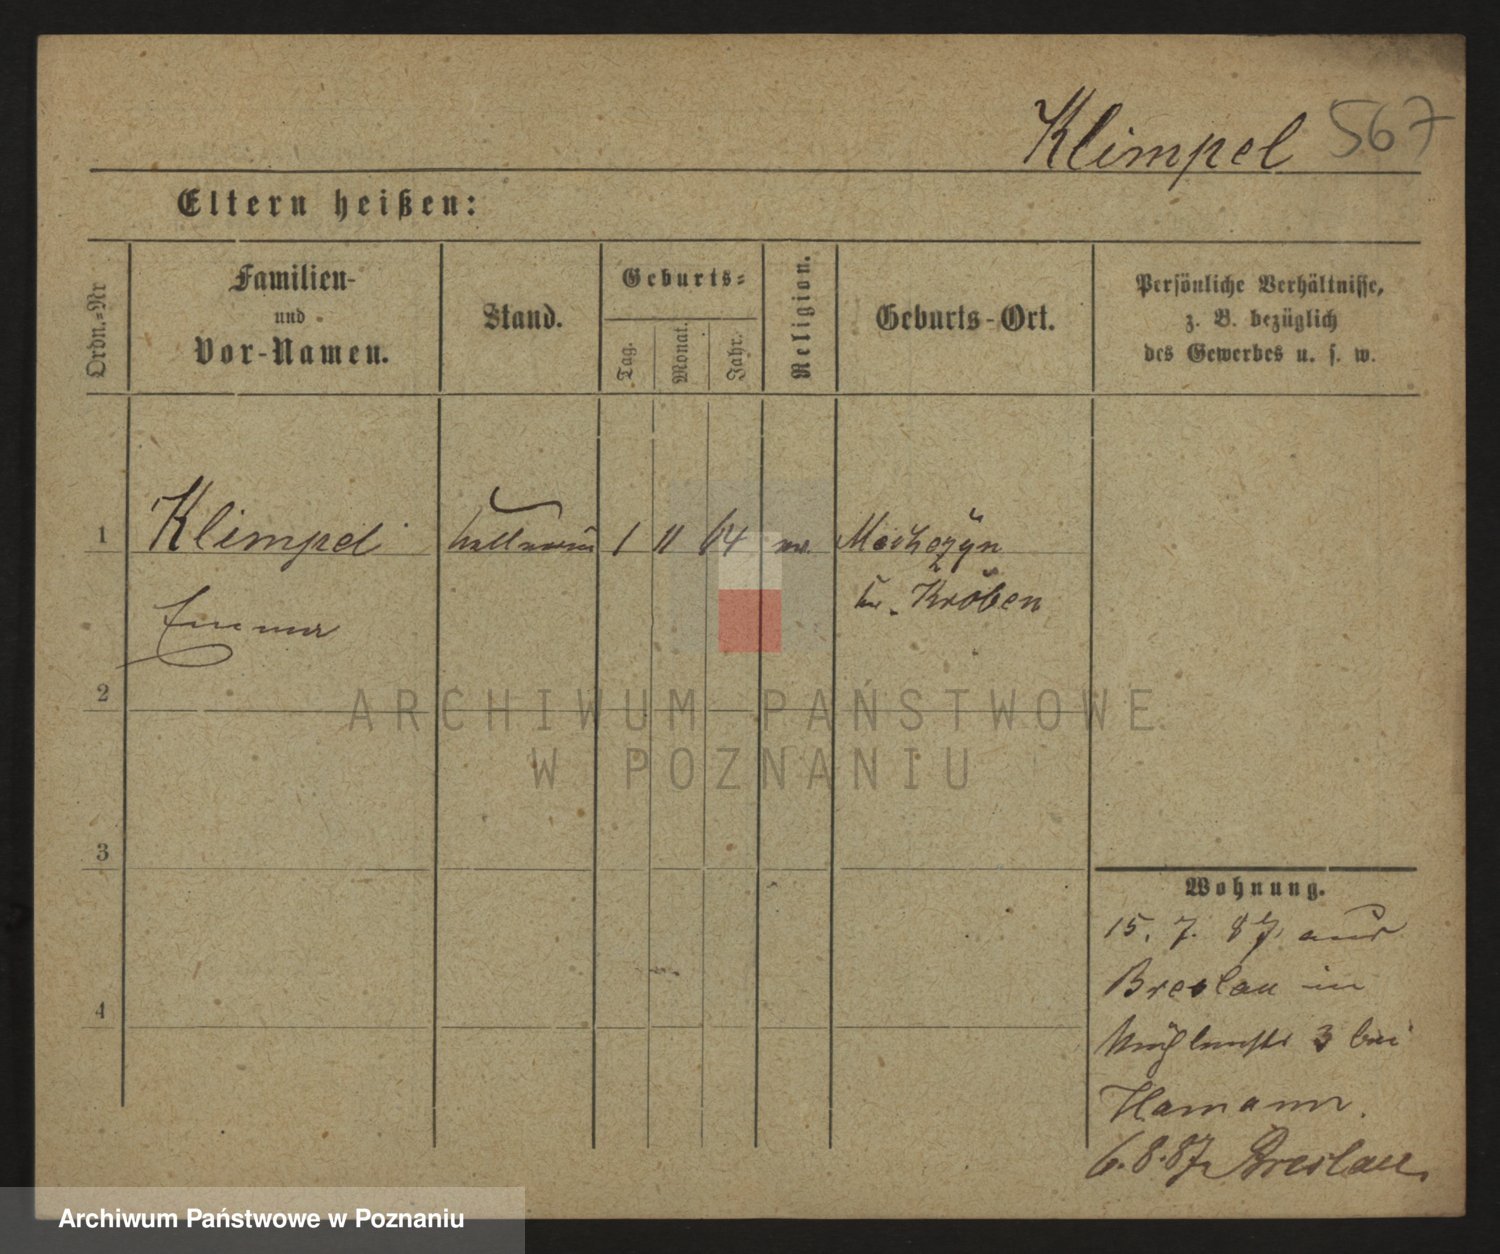 Klimpel 567
Eltern heißen:
Ordn.-Nr
Familien-
und
Vor-Namen.
Stand.
Geburts-
Tag.
Monat.
Jahr.
Religion.
Geburts-Ort.
Persönliche Verhältnisse,
z. B. bezüglich
des Gewerbes u. s. w.
1 Klimpel Kellnerin 1 11 64
kr. Kröben
Emma
2
ARCHIWUM PAŃSTWOWE
W POZNANIU
3
Wohnung.
15. 7. 87 aus
Breslau in
Mühlenstr 3 bei
Hamann.
4
6.8.87 Breslau.
Archiwum Państwowe w Poznaniu